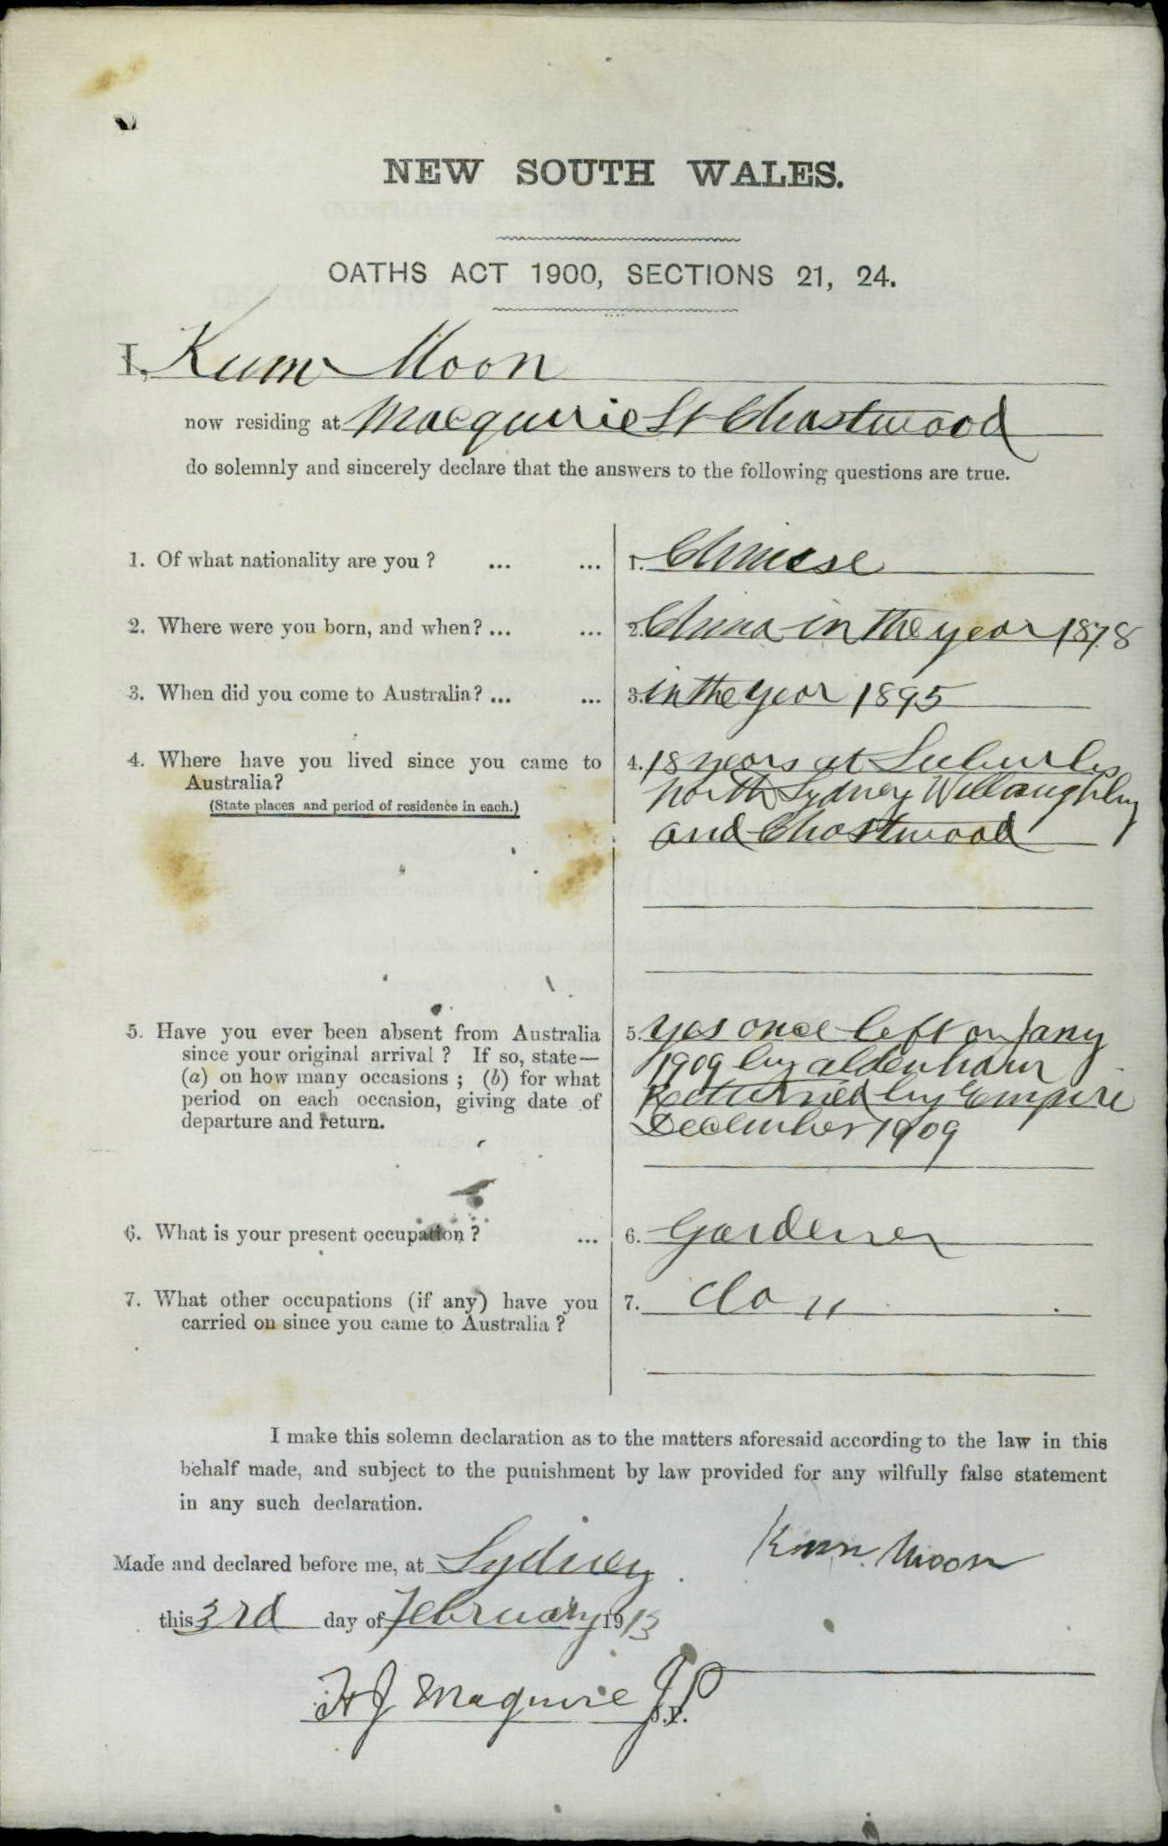 NEW SOUTH WALES.
OATHS ACT 1900, SECTIONS 21, 24.
I, Kum Moon
now residing at Macquarie St Chastwood
do solemnly and sincerely declare that the answers to the following questions are true.
1. Of what nationality are you ? ... ... 1. Chinese
2. Where were you born, and when? ... ... 2. China in the year 1878
3. When did you come to Australia? ... ... 3. in the year 1895
4. Where have you lived since you came to 4. 18 years at Suburbs
Australia? North Sydney Willaughby
(State places and period of residence in each.)
and Chastwood
5. Have you ever been absent from Australia 5. yes once left on Jany
since your original arrival ? If so, state— 1909 by aldenham
(a) on how many occasions ; (b) for what
period on each occasion, giving date of Returned by Empire
departure and return. December 1909
6. What is your present occupation ? ... 6. Gardener
7. What other occupations (if any) have you 7. do "
carried on since you came to Australia ?
I make this solemn declaration as to the matters aforesaid according to the law in this
behalf made, and subject to the punishment by law provided for any wilfully false statement
in any such declaration.
Made and declared before me, at Sydney Kum Moon
this 3rd day of February 1913
H J Maguire JP
J.P.